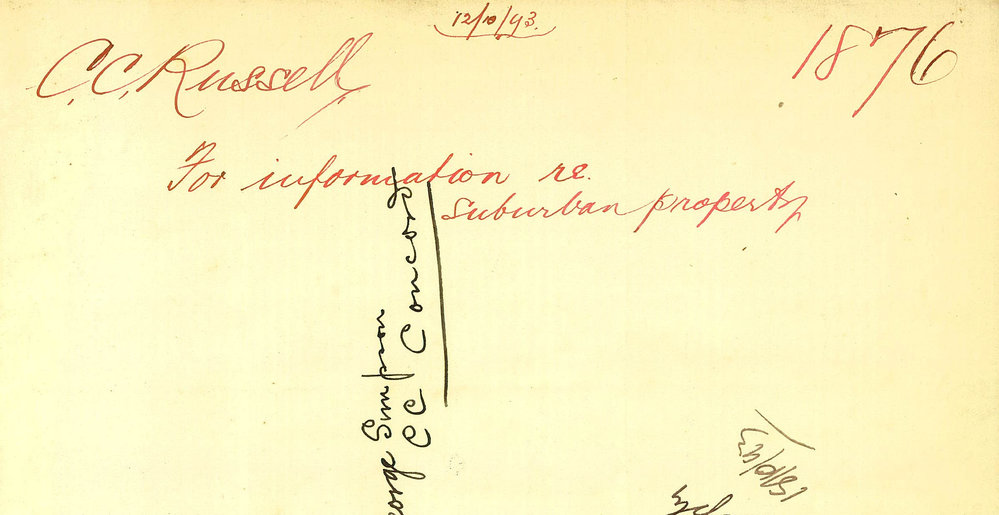 12/10/93.
C.C. Russell
1876
For information re.
suburban property
George Simpson
CC Concord